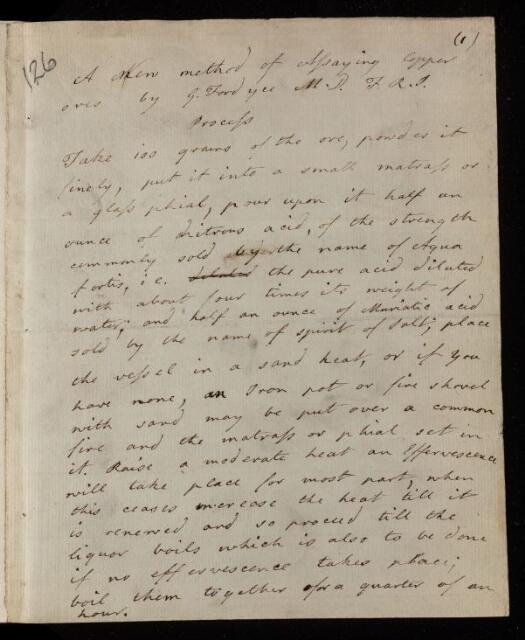 126
(1)
A New method of Aſsaying Copper
ores by G. Fordyce M.D. F.R.S.
Proceſs
Take 100 grains of the ore, powder it
finely, put it into a small matraſs or
a glaſs phial, pour upon it half an
ounce of nitrous acid, of the strength
commonly sold by the name of Aqua
fortis, i.e. the pure acid diluted
with about four times its weight of
water; and half an ounce of Muriatic acid
sold by the name of spirit of Salt; place
the veſsel in a sand heat, or if you
have none, an Iron pot or fire shovel
with sand may be put over a common
fire and the matraſs or phial set in
it. Raise a moderate heat an Effervescence
will take place for most part, when
this ceases increase the heat till it
is renewed and so proceed till the
liquor boils which is also to be done
if no effervescence takes place;
boil them together for a quarter of an
hour.